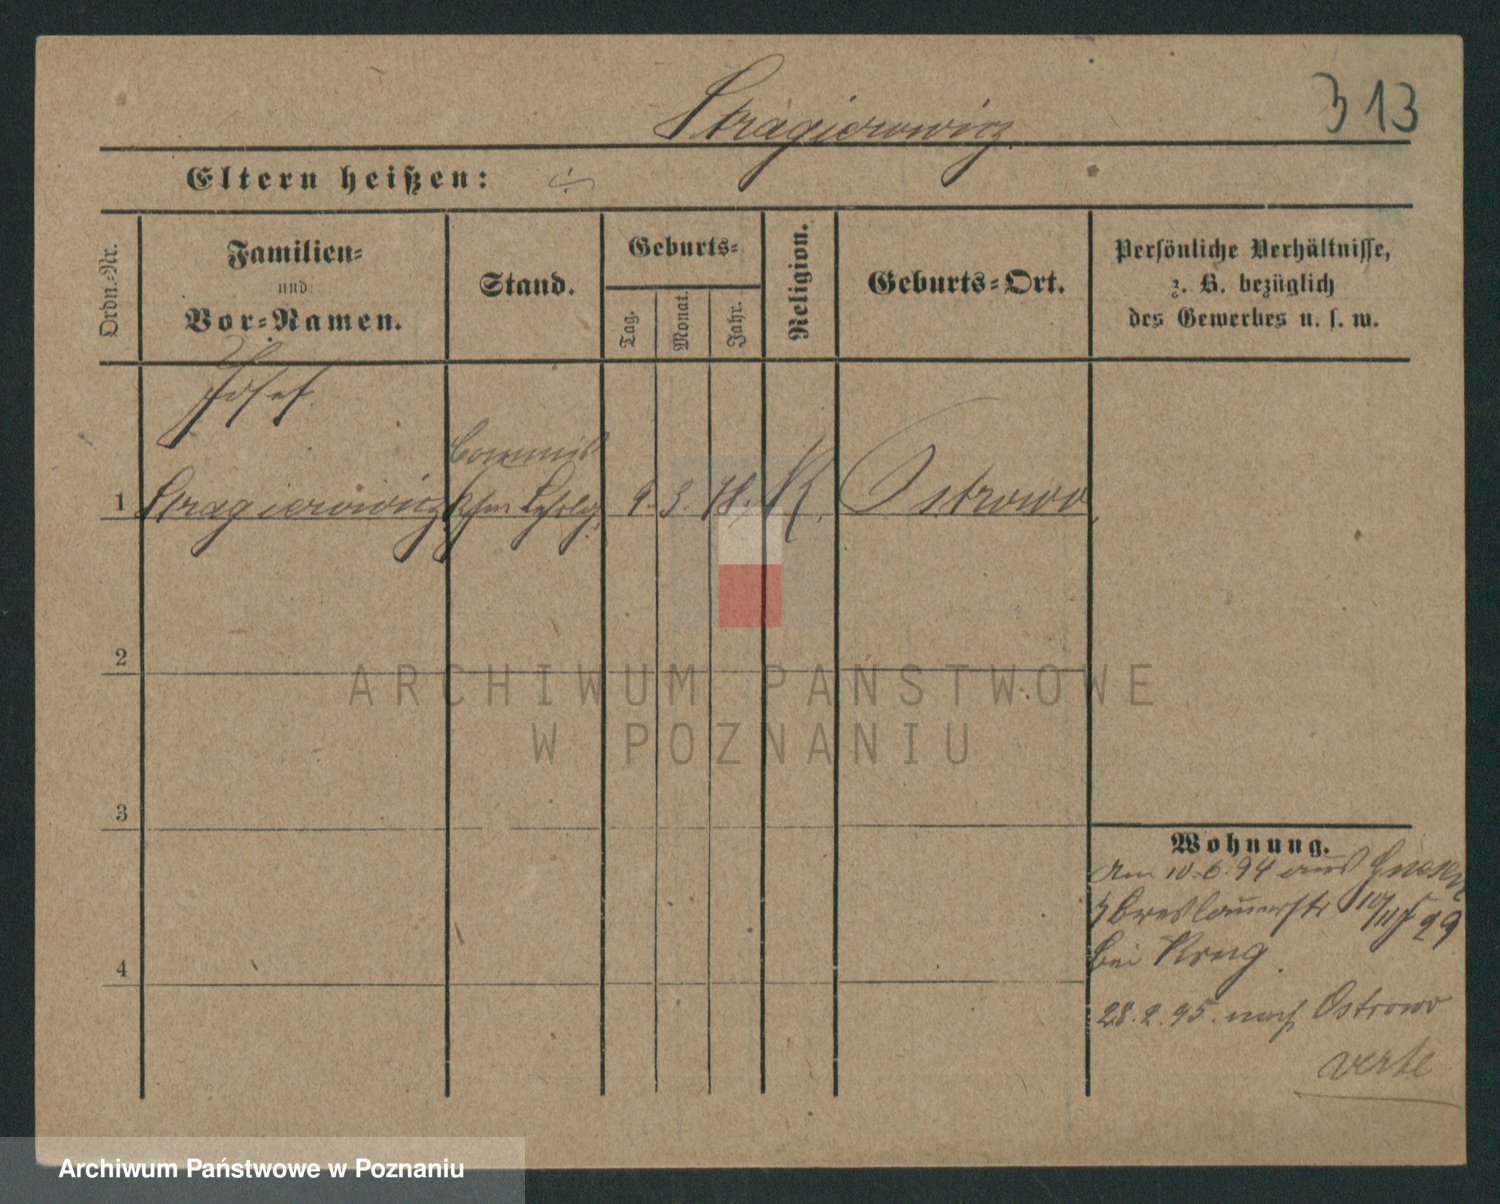 313
Stragierowicz
Eltern heißen: ÷
Ordn.-Nr.
Familien-
und
Vor-Namen.
Stand.
Geburts-
Tag.
Monat.
Jahr.
Religion.
Geburts-Ort.
Persönliche Verhältnisse,
z. B. bezüglich
des Gewerbes u. s. w.
Josef
Commis
1 Stragierowicz 9. 3. 78. K. Ostrowo
2
3
4
Wohnung.
Am 10.6.94 aus Gnesen
Breslauerstr
bei Krug.
28.2.95. nach Ostrowo
verte
ARCHIWUM PAŃSTWOWE
W POZNANIU
Archiwum Państwowe w Poznaniu